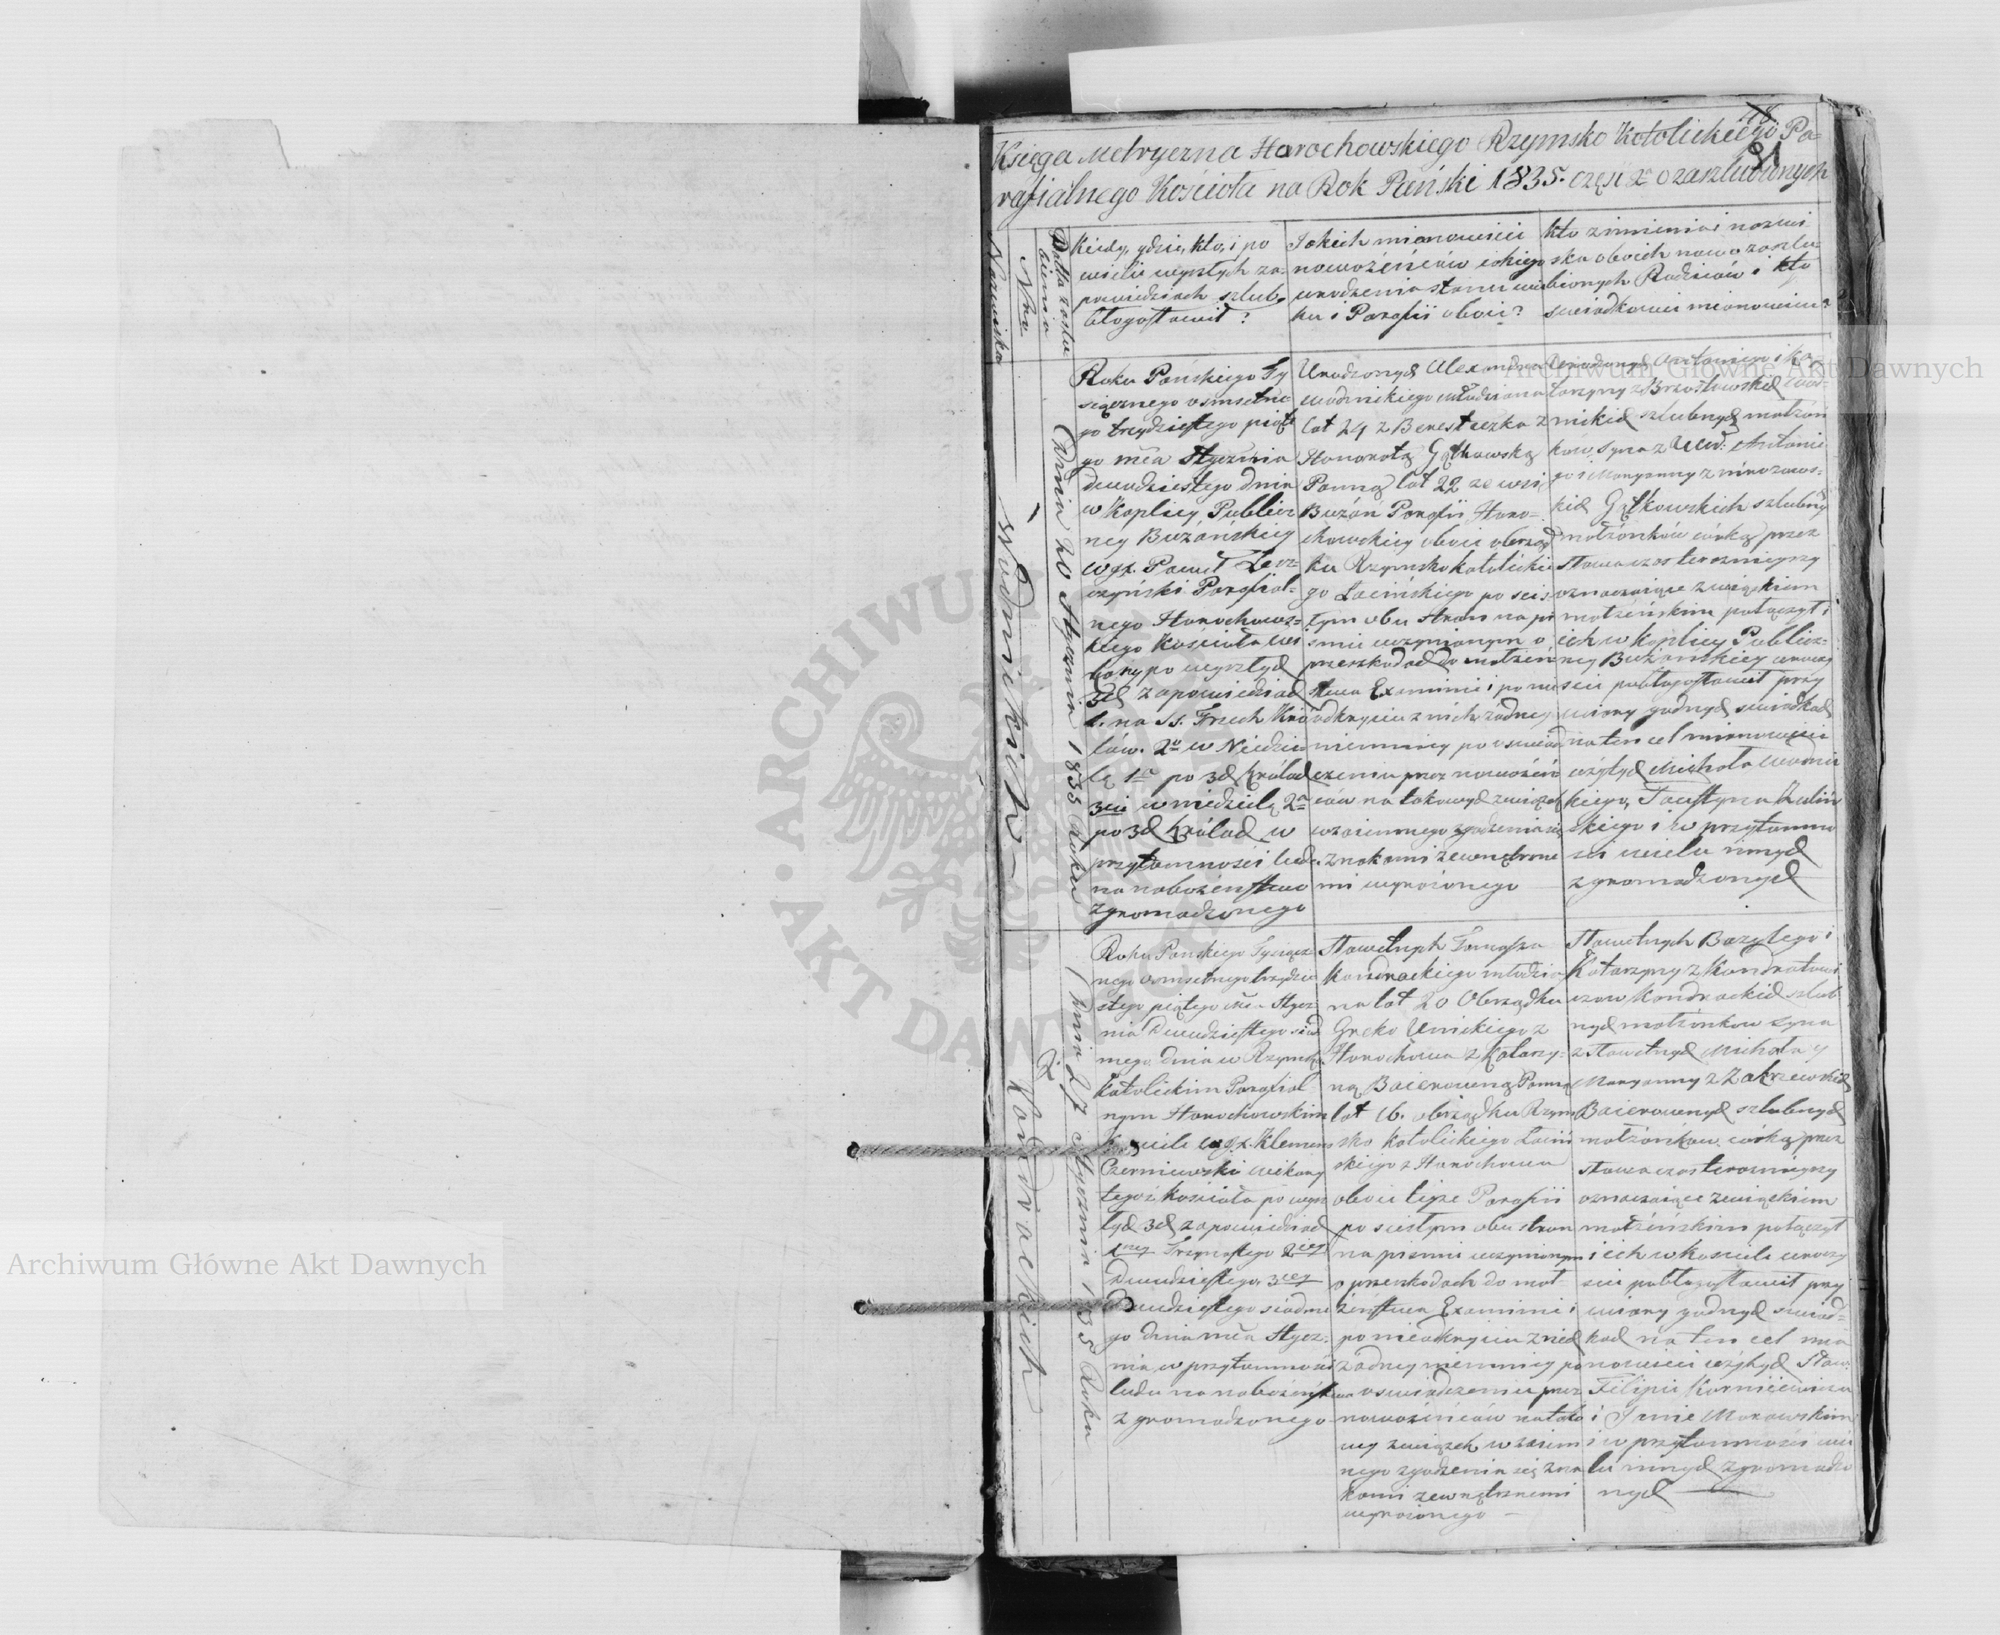 48
81
Księga Metryczna Horochowskiego Rzymsko Katolickiego Pa=
rafialnego Kościoła na Rok Pański 1835. część 2a o zaszlubionych
Nazwiska
Nro
Datta zaszlu
bienia
Kiedy, gdzie, kto, i po
wielu wyszłych za-
powiedziach szlub
błogosławił?
Jakich mianowicie
nowożeńców iakiego
urodzenia stanu wie
ku i Parafii oboie?
Kto z imienia i nazwi
ska oboich nowo zaszlu-
bionych Rodziców i kto
swiadkowie mianowicie?
Wodnickich
1
Dnia 20 Stycznia 1835 Roku
Roku Pańskiego Ty
siącznego osmsetne
go trzydziestego piąte
go mca Stycznia
dwudziestego dnia
w Kaplicy Publicz
ney Buzańskiey
wgx. Paweł Lesz-
czyński Parafial-
nego Horochows=
kiego Kościoła wi
kary po wyszłych
3ch zapowiedziach
1. na SS. Trzech Kró
lów. 2a w Niedzie
lę 1a po 3ch Królach
3cia w niedzielę 2a
po 3ch Królach w
przytomności ludu
na nabożeństwo
zgromadzonego
Urodzonych Alexandra
Wodnickiego młodziana
lat 24 z Beresteczka z
Honoratą Gątkowską
Panną lat 22 ze wsi
Bużan Parafii Horo-
chowskiey oboie obrząd
ku Rzymsko katolickie
go Łacińskiego po scis
łym obu stron na pi
śmie uczynionym o
przeszkodach do małżeń
stwa Examinie i po nie
odkryciu z nich żadney
niemniey po oświad
czeniu przez nowożeń
ców na takowy związek
wzaiemnego zgodzenia się
znakami zewnętrzne
mi wyrażonego
Urodzonych Antoniego i Ka
tarzyny z Brzostowskich Wod-
nickich szlubnych małżon
ków, syna z Urod. Antonie
go i Maryanny z
kich Gątkowskich szlubnych
małżonków córką przez
słowa czas teraznieyszy
oznaczaiące związkiem
małżeńskim połączył i
ich w Kaplicy Publicz-
ney Bużanskiey uroczy
scie pobłogosławił przy
wiary godnych swiadkach
na ten cel mianowicie
użytych Michała
kiego, Faustyna
skiego i w przytomno
sci wielu innych
zgromadzonych
Kondrackich
2
Dnia 27 Stycznia 1835 Roku
Roku Pańskiego Tysiącz
nego Osmsetnego trzydzie
stego piątego mca Stycz
nia Dwudziestego siód
mego dnia w Rzymsko
katolickim Parafial
nym Horochowskim
Kościele wgx. Klemens
Czerniewski wikary
tegoż Kościoła po wysz
łych 3ch zapowiedziach
1ney Trzynastego 2iey
Dwudziestego, 3ciey
Dwudziestego siódme
go dnia mca Stycz-
nia w przytomności
ludu na nabożeństwo
zgromadzonego
Sławetnych Tomasza
Kondrackiego młodzia
na lat 20 Obrządku
Greko Unickiego z
Horochowa z Katarzy-
ną Baierowną Panną
lat 16. obrządku Rzym
sko katolickiego Łaciń
skiego z Horochowa
oboie teyże Parafii
po scisłym obu stron
na pismie uczynionym
o przeszkodach do mał-
żeństwa Examinie i
po nieodkryciu z nich
żadney niemniey po
oswiadczeniu przez
nowożeńców na tako
wy związek wzaiem
nego zgodzenia się zna
kami zewnętrznemi
wyrażonego
Sławetnych Bazylego i
Katarzyny z Kondratowi
czow Kondrackich szlub
nych małżonkow syna
z sławetnych Michała y
Maryanny z Zakrzewskich
Baierownych szlubnych
małżonkow córką przez
słowa czas teraznieyszy
oznaczaiące związkiem
małżeńskim połączył
i ich w kosciele uroczy
scie pobłogosławił przy
wiary godnych swiad-
kach na ten cel mia
nowicie użytych Sław.
Filipie Korniiewiczu
i Janie Morawskim
i w przytomności wie
lu innych zgromadzo
nych
Archiwum Główne Akt Dawnych
Archiwum Główne Akt Dawnych
ARCHIWUM
AKT DAWNYCH